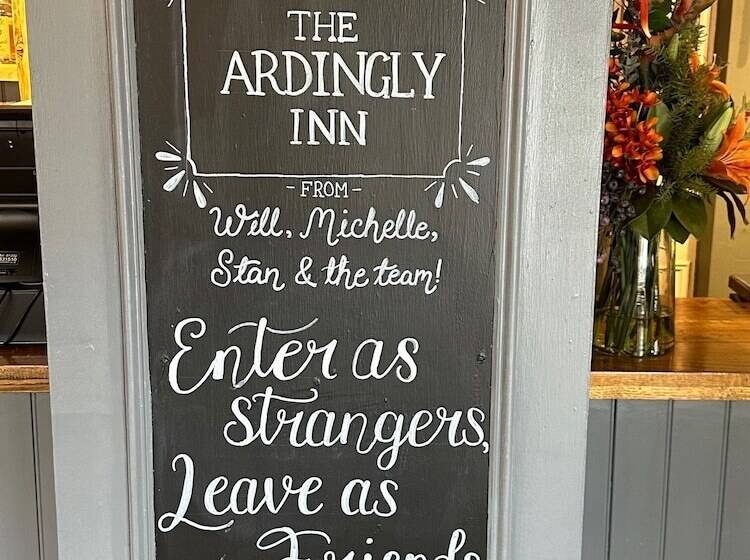 THE
ARDINGLY
INN
- FROM -
Will, Michelle,
Stan & the team!
Enter as
strangers,
Leave as
Friends